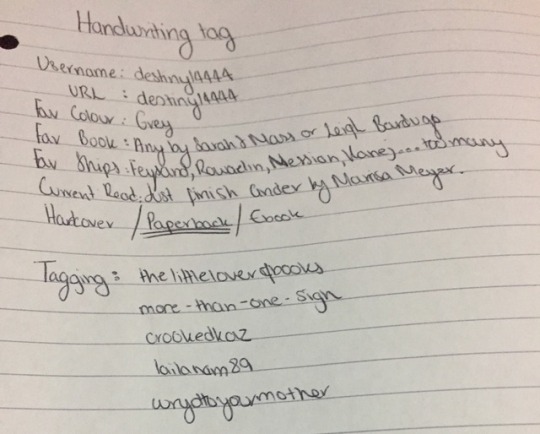 Handwriting tag
Username: destiny14444
URL : destiny14444
Fav Colour: Grey
Fav Book: Any by Sarah J Mass or Leigh Bardugo
Fav Ships: Feysand, Rowaelin, Messian, Kanej... too many
Current Read: Just finish Cinder by Marrisa Meyer.
Hardcover / Paperback / Ebook
Tagging: thelittleloverofbooks
more-than-one-sign
crookedkaz
lailanam89